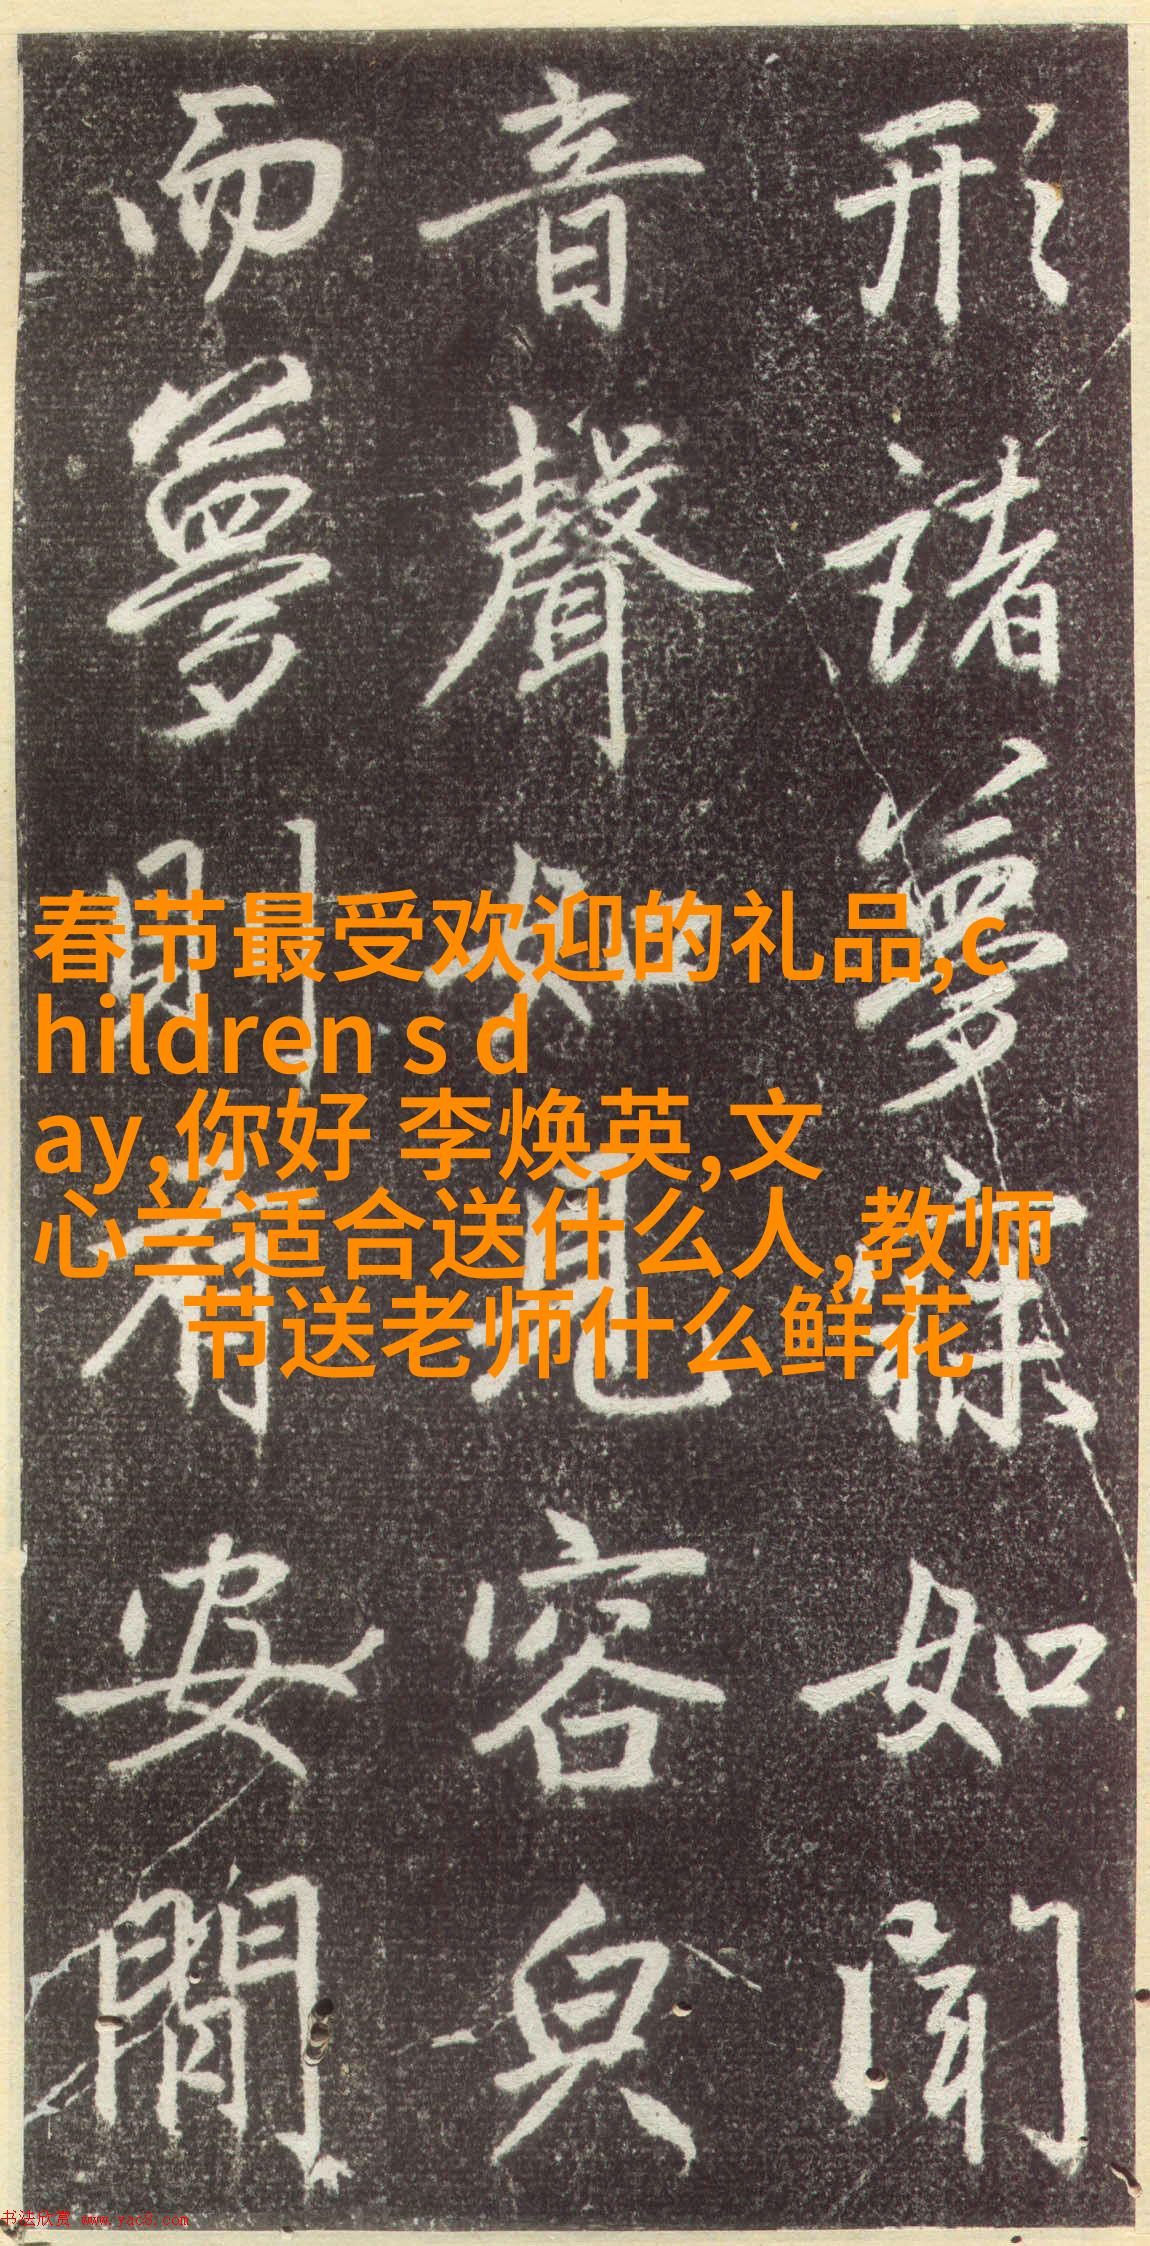 形諸夢寐如聞
音聲如見容皃
而夢則安閒
春节最受欢迎的礼品,c
hildren s d
ay,你好 李焕英,文
心兰适合送什么人,教师
节送老师什么鲜花
书法欣赏 www.yac8.com